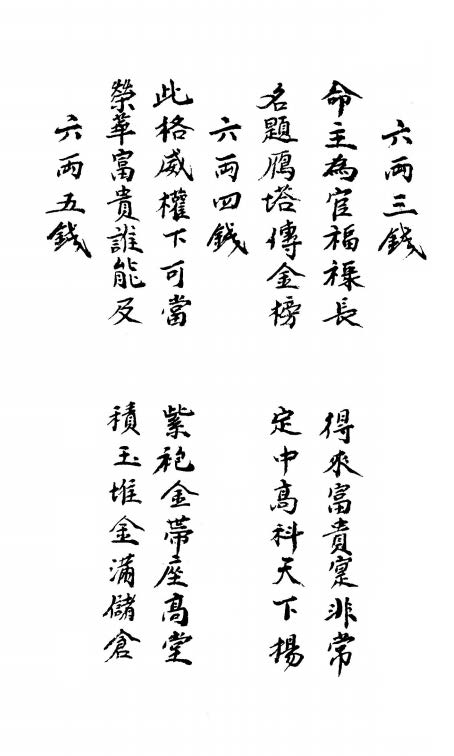 六両三錢
命主為官福祿長　得來富貴寔非常
名題鴈塔傳金榜　定中高科天下揚
六両四錢
此格威權不可當　紫袍金帶座高堂
榮華富貴誰能及　積玉堆金滿儲倉
六両五錢